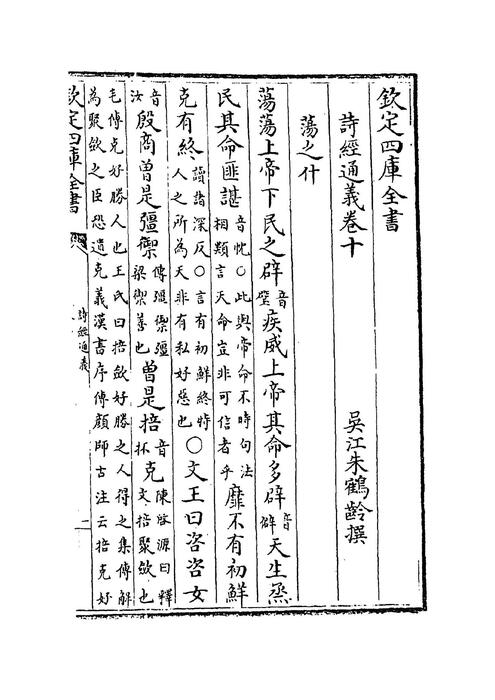 欽定四庫全書
詩經通義卷十
吳江朱鶴齡撰
蕩之什
蕩蕩上帝下民之辟音壁疾威上帝其命多辟音僻天生烝
民其命匪諶音忱○此與帝命不時句法相類言天命豈非可信者乎靡不有初鮮
克有終讀諸深反○言有初鮮終特人之所為天非有私好惡也○文王曰咨咨女
音汝殷商曾是彊禦傳彊禦彊梁禦善也曾是掊音抔克陳啓源曰釋文掊聚斂也
毛傳克好勝人也王氏曰掊斂好勝之人得之集傳解
為聚斂之臣恐遺克義漢書序傳顏師古注云掊克好
欽定四庫全書
詩經通義